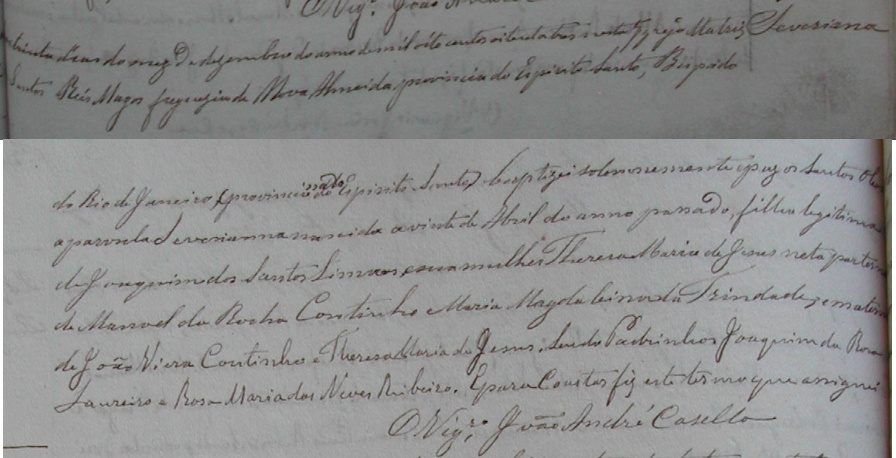 O Vigr.º João André
trinta dias do mez d dezembro do anno de mil oito centos oitenta tres nesta Igreja Matriz Severiana
Santos Reis Magos freguezia de Nova Almeida provincia do Espirito Santo, Bispado
do Rio de Janeiro, (provincia do Espirito Santo) baptizei solemnemente e puz os Santos Oleos
a parvula Severianna nascida a vinte de Abril do anno passado, filha legitima
de Joaquim dos Santos e sua mulher Theresa Maria de Jesus neta paterna
de Manoel da Rocha Coutinho e Maria Magdalena da Trindade, e materna
de João Viera Coutinho e Theresa Maria de Jesus. Sendo Padrinhos Joaquim da Rosa
Laureiro e Rosa Maria das Neves Ribeiro. E para Constar fiz este termo que assignei
O Vigr.º João André Casella